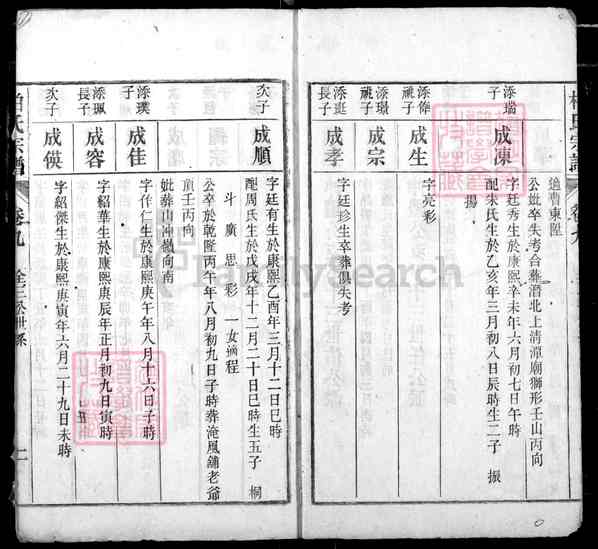 適曹東陞
公妣卒失考合葬潛北上清潭廟獅形壬山丙向
添瑞
子
成涷
字廷秀生於康熙辛未年六月初七日午時
配朱氏生於乙亥年三月初八日辰時生二子 振
揚
添偉
祧子
成生
字亮彩
添璟
祧子
成宗
添珽
長子
成孝
字廷珍生卒葬俱失考
次子
成順
字廷有生於康熙乙酉年三月十二日巳時
配周氏生於戊戌年十二月二十日巳時生五子 桐
斗 廣 思 彩 一女適程
公卒於乾隆丙午年八月初九日子時葬淹風舖老爺
童壬丙向
妣葬山冲嶺向南
添璞
子
成佳
字作仁生於康熙庚午年八月十六日子時
添珮
長子
成容
字紹華生於康熙庚辰年正月初九日寅時
次子
成僙
字紹傑生於康熙庚寅年六月二十九日未時
柏氏宗譜
卷九
FamilySearch